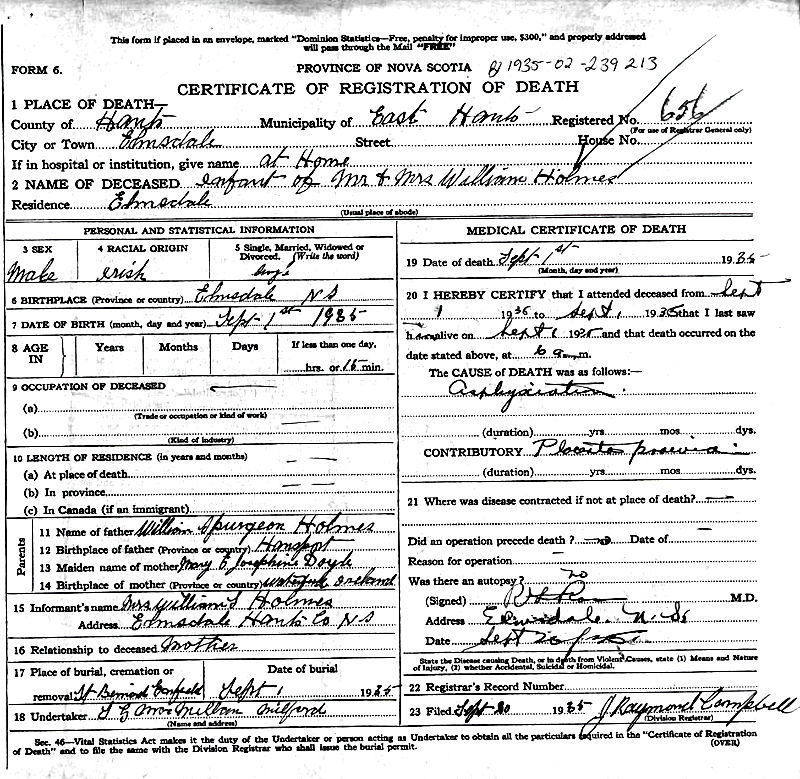 This form if placed in an envelope, marked "Dominion Statistics—Free, penalty for improper use, $300," and properly addressed
will pass through the Mail "FREE"
FORM 6.
PROVINCE OF NOVA SCOTIA 1935-02-239213
CERTIFICATE OF REGISTRATION OF DEATH
1 PLACE OF DEATH—
County of Hants Municipality of East Hants Registered No. 656
(For use of Registrar General only)
City or Town Elmsdale Street House No.
If in hospital or institution, give name at Home
2 NAME OF DECEASED infant of Mr & Mrs William Holmes
Residence Elmsdale
(Usual place of abode)
PERSONAL AND STATISTICAL INFORMATION
3 SEX 4 RACIAL ORIGIN 5 Single, Married, Widowed or Divorced. (Write the word)
Male Irish
6 BIRTHPLACE (Province or country) Elmsdale NS
7 DATE OF BIRTH (month, day and year) Sept 1st 1935
8 AGE IN Years Months Days If less than one day,
hrs. or 15 min.
9 OCCUPATION OF DECEASED —
(a)
(Trade or occupation or kind of work)
(b) —
(Kind of industry)
10 LENGTH OF RESIDENCE (in years and months)
(a) At place of death
(b) In province
(c) In Canada (if an immigrant)
Parents
11 Name of father William Spurgeon Holmes
12 Birthplace of father (Province or country) Hantsport
13 Maiden name of mother Mary E Josephine Doyle
14 Birthplace of mother (Province or country) Waterford Ireland
15 Informant's name Mrs William S Holmes
Address Elmsdale Hants Co NS
16 Relationship to deceased Mother
17 Place of burial, cremation or removal Date of burial
St Bernard Enfield Sept 1 1935
18 Undertaker McMillan Milford
(Name and address)
MEDICAL CERTIFICATE OF DEATH
19 Date of death Sept 1st 1935
(Month, day and year)
20 I HEREBY CERTIFY that I attended deceased from Sept
1 1935 to Sept 1 1935 that I last saw
h alive on Sept 1 1935 and that death occurred on
date stated above, at 6 a.m.
The CAUSE of DEATH was as follows:—
Asphyxiation
(duration) yrs. mos. dys.
CONTRIBUTORY Placenta praevia
(duration) yrs. mos. dys.
21 Where was disease contracted if not at place of death? —
Did an operation precede death? no Date of —
Reason for operation —
Was there an autopsy? no
(Signed) M.D.
Address Elmsdale N.S.
Date Sept
State the Disease causing Death, or in death from Violent Causes, state (1) Means and Nature
of Injury, (2) whether Accidental, Suicidal or Homicidal.
22 Registrar's Record Number
23 Filed Sept 20 1935 J Raymond Campbell
(Division Registrar)
Sec. 46—Vital Statistics Act makes it the duty of the Undertaker or person acting as Undertaker to obtain all the particulars required in the "Certificate of Registration
of Death" and to file the same with the Division Registrar who shall issue the burial permit.
(OVER)